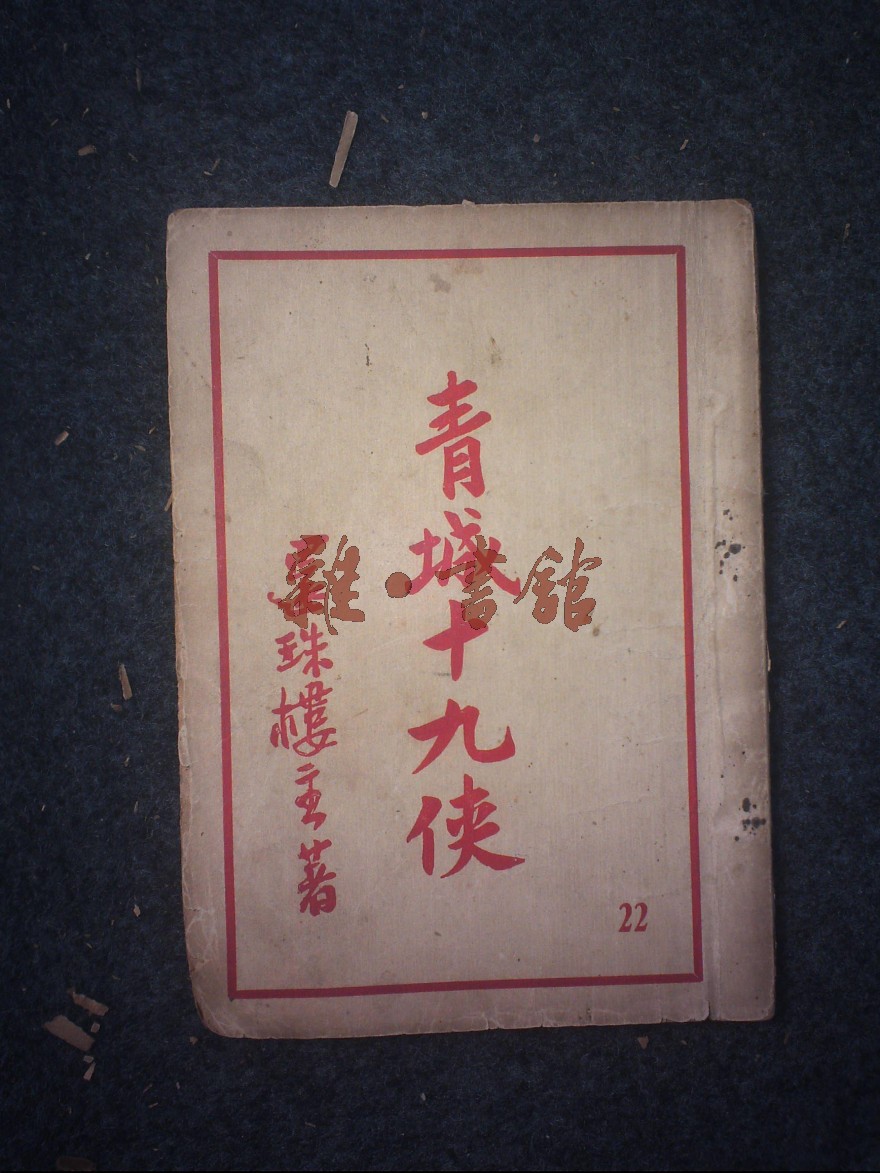 青城十九俠
還珠樓主著
22
雜·書館